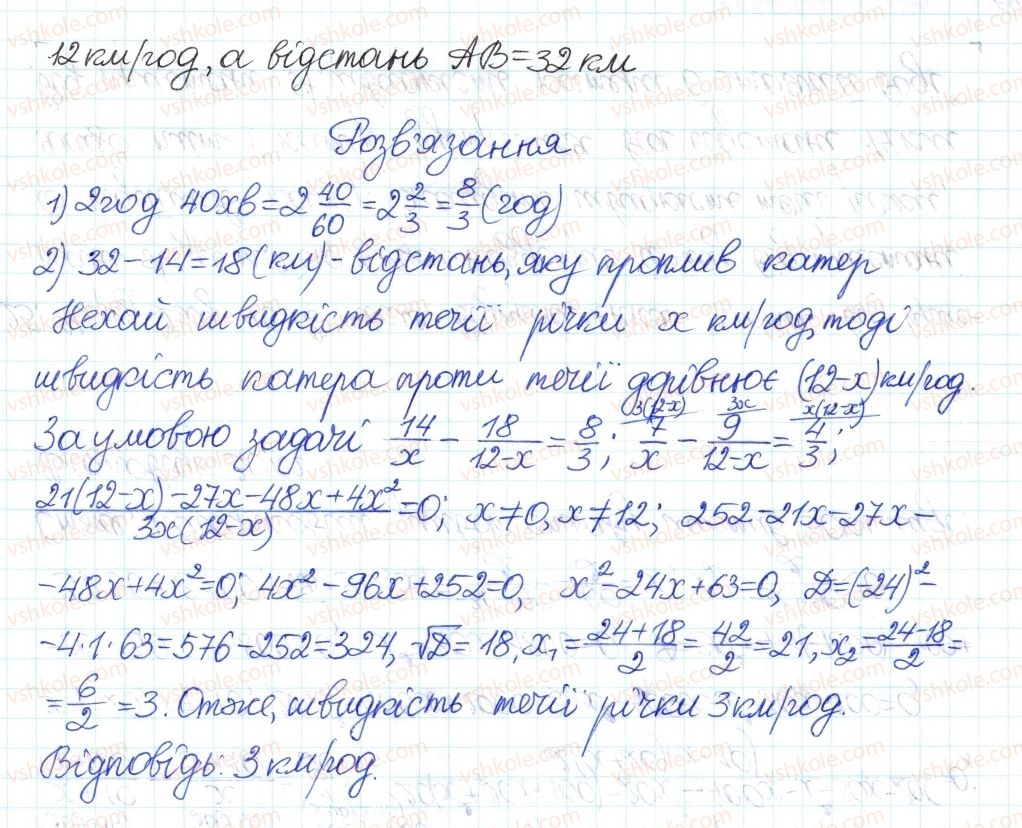 12 км/год, а відстань AB = 32 км
Розв'язання
1) 2 год 40 хв = 2 40/60 = 2 2/3 = 8/3 (год)
2) 32 - 14 = 18 (км) - відстань, яку проплив катер
Нехай швидкість течії річки x км/год, тоді
швидкість катера проти течії дорівнює (12-x) км/год.
За умовою задачі 14/x - 18/(12-x) = 8/3; 3(12-x) 7/x - 3x 9/(12-x) = x(12-x) 4/3;
(21(12-x) - 27x - 48x + 4x²)/(3x(12-x)) = 0; x ≠ 0, x ≠ 12; 252 - 21x - 27x -
- 48x + 4x² = 0; 4x² - 96x + 252 = 0, x² - 24x + 63 = 0, D = (-24)² -
- 4·1·63 = 576 - 252 = 324, √D = 18, x₁ = (24+18)/2 = 42/2 = 21, x₂ = (24-18)/2 =
= 6/2 = 3. Отже, швидкість течії річки 3 км/год.
Відповідь: 3 км/год.